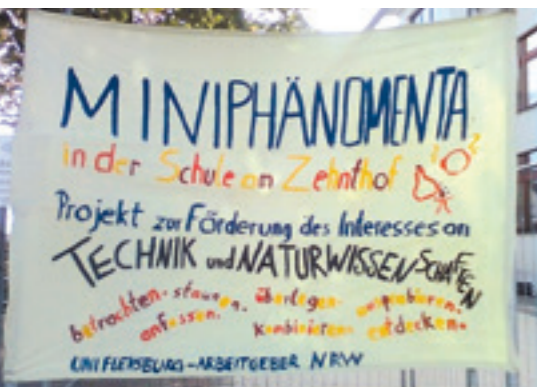 MINIPHÄNOMENTA
in der Schule am Zehnthof
Projekt zur Förderung des Interesses an
TECHNIK und NATURWISSENSCHAFTEN
betrachten. staunen. überlegen. ausprobieren.
anfassen. kombinieren. entdecken.
UNI FLENSBURG-ARBEITGEBER NRW